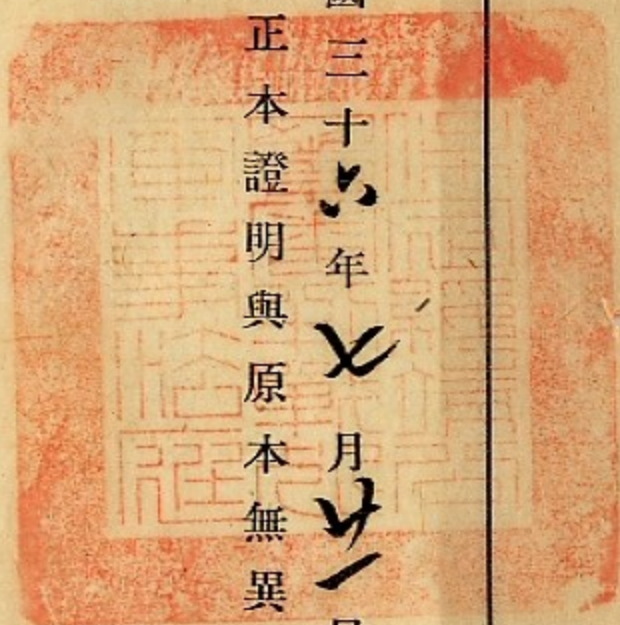 國三十六年七月廿一日
正本證明與原本無異